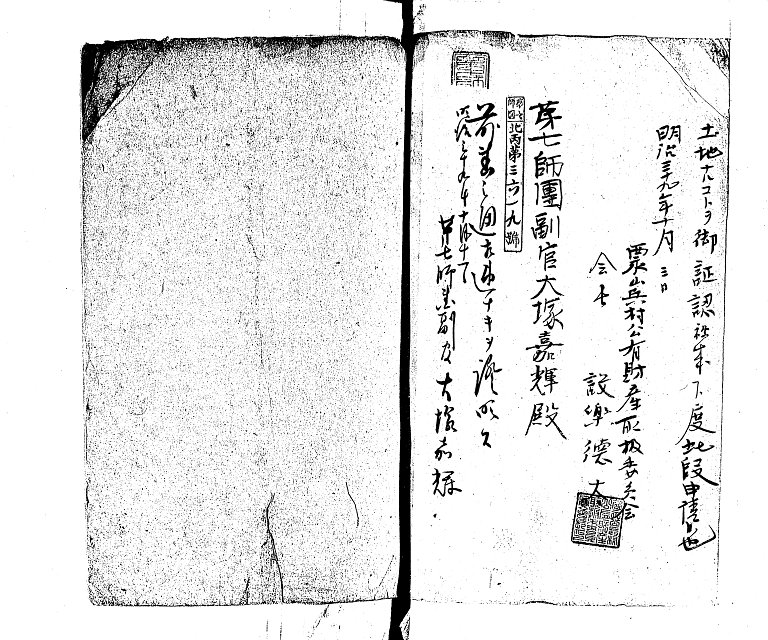 土地ナルコトヲ御証認被成下度此段申請候也
明治三十九年十月三日
兵村公有財産取扱委員会
会長 設樂德太
第七師團副官大塚嘉輝殿
第七師團
北丙第三六一九號
前書之通相違ナキヲ證明ス
明治三十九年十月
第七師團副官 大塚嘉輝